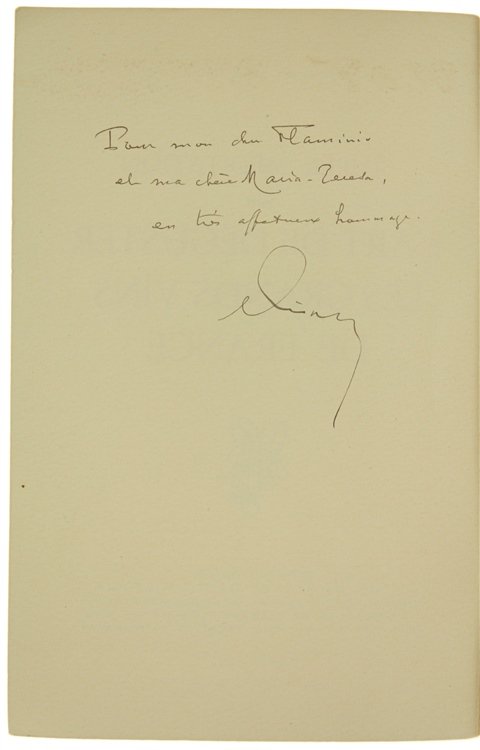 Pour mon cher Flaminio
et ma chère Maria-Teresa,
en très affectueux hommage.